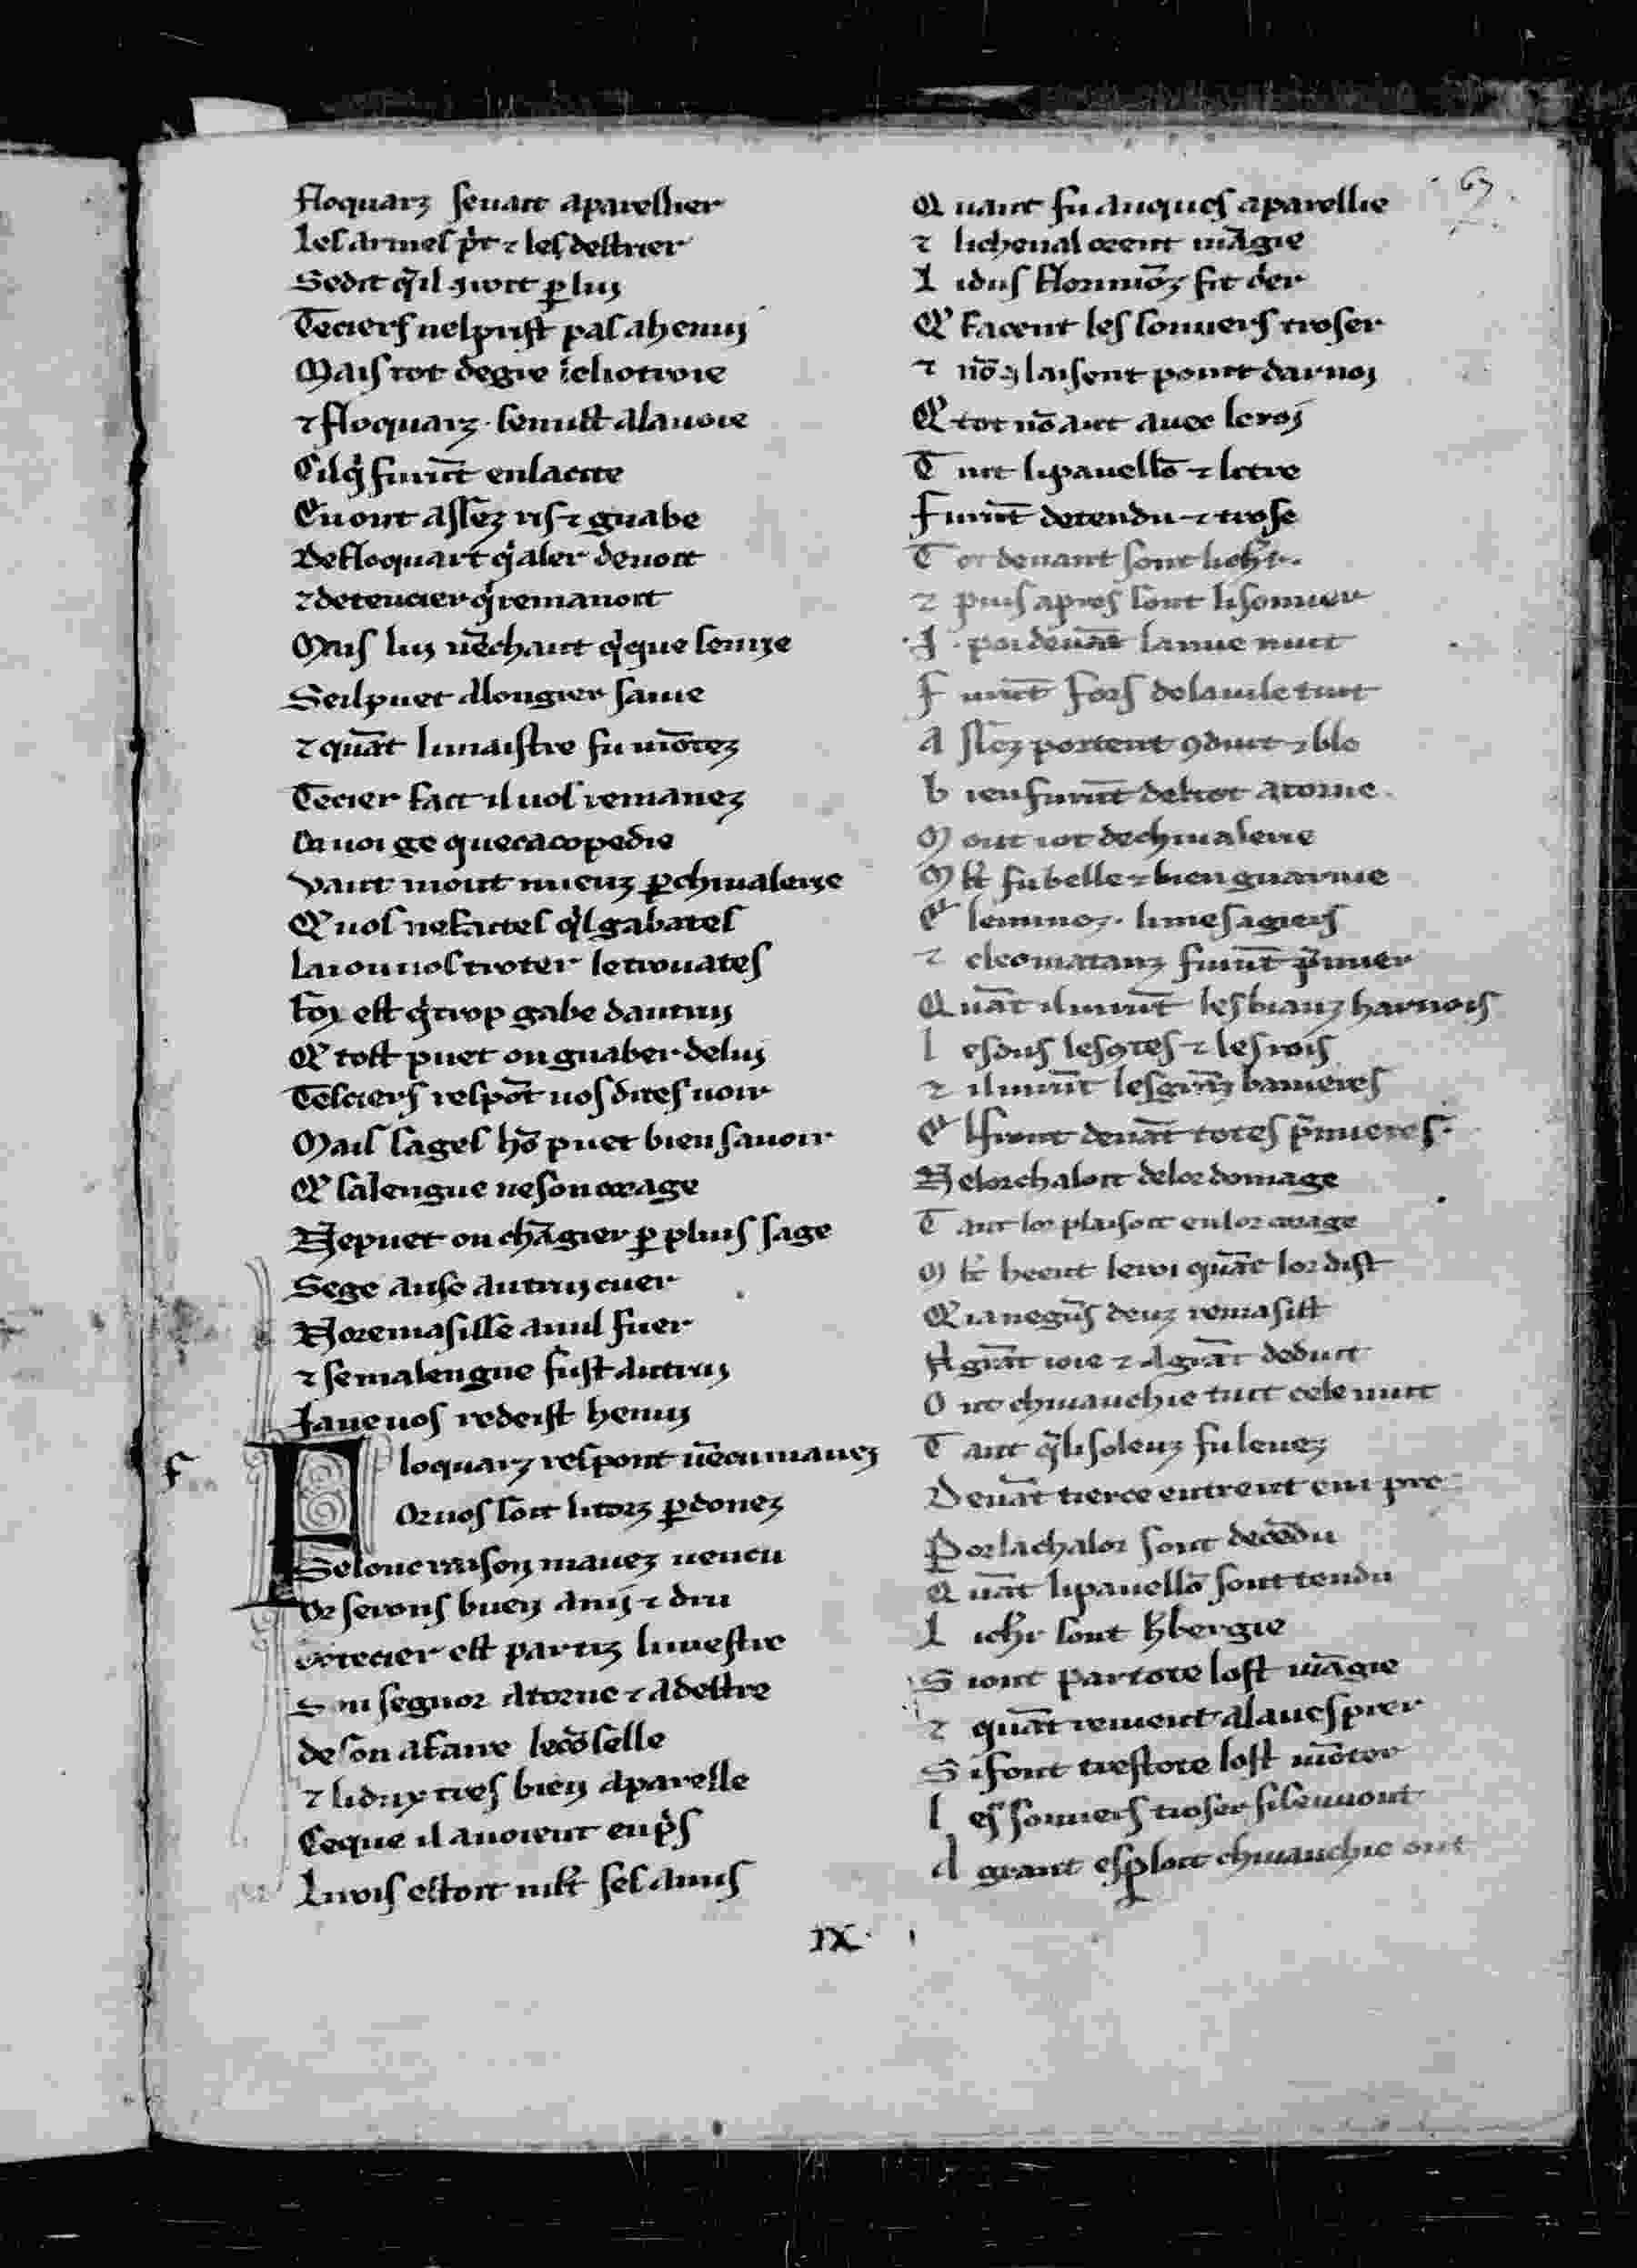 floquarz senait aparellier
Les armes p̾t ⁊ les destrier
Se dit q̾l ꝯroit ꝑ lui
Teciers nel prist pas a henui
Mais tot de gre
⁊ floquarz senuist a la uoie
Cil q̾ furūt en la cite
En ont assez ris ⁊ guabe
De floquart q̾ aler deuoit
⁊ de tencier q̾ remanoit
Mais lui nē chaut q̾ que sen rie
Se il puet alongier sa uie
⁊ quāt li maistre fu mōtez
Tecier fait il uos remanez
Or uoi ge que cacopedie
Vaut mout mieuz ꝑ chiualerie
Et uos ne faites q̾l gabates
La ou uos troter le trouates
fox est q̾ trop gabe dautrui
Et tost puet on guaber de lui
Telciers respōt uos dites uoir
Mais sages hō puet bien sauoir
Et sa lengue ne son corage
Ne puet on chāgier ꝑ plus sage
Se ge ause autrui cuer
Ne remasisse a nul fuer
⁊ se ma lengue fust autrui
Ia ne uos redeist henui
f
Floquarz respont uēcu mauez
Or uos soit li torz ꝑdonez
Selonc raison mauez uencu
Or serons buen ami ⁊ dru
De tecier est partiz li mestre
Son segnor atorne ⁊ adestre
de son afaire le cōselle
⁊ li dux tres bien aparelle
Ce que il auoient en p̾s
Li rois estoit mlt ses amis
67
Q uant fu auques aparellie
⁊ li cheual orent māgie
L i dus florimōz fit crier
Q̾ facent les somiers troser
⁊ nō ꝯ laisent point darnoi
Et tot nō aut auec le roi
T uit li pauellō ⁊ li tre
F urūt detendu ⁊ trose
T ot deuant sont li
⁊ puis apres sont li somier
.I. poi deuāt la nue nuit
F urūt fors de la uile tuit
A ssez portent ꝯduit ⁊ ble
b ien furūt de tot atorne
M out iot de chiualerie
M lt fu belle ⁊ bien guarnie
⁊ cleomatanz furūt p̾mier
Q uāt il uirūt les biauz harnois
l es dus les ꝯtes ⁊ les rois
⁊ il uirūt les grāz banieres
Q̾ liront deuāt totes p̾mieres
N e lor chaloit de lor domage
T ant lor plaisoit en lor corage
M lt heent le roi quāt lor dist
Q̾ ia negūs deuz remasist
A grāt ioie ⁊ a grāt deduit
O nt chiuauchie tuit cele nuit
T ant q̾ li soleuz fu leuez
Deuāt tierce entrent en i pre
Por la chalor sont decēdu
Q uāt li pauellō sont tendu
L i chr sont hbergie
S i ont par tote lost māgie
⁊ quāt uenient a la uesprer
S i font trestote lost mōter
l es somiers troser si sen uont
A grant esploit chiuauchie ont
IX